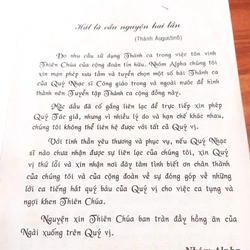 Hát là cầu nguyện hai lần
(Thánh Augustinô)
Do nhu cầu sử dụng Thánh ca trong việc tôn vinh
Thiên Chúa của cộng đoàn tín hữu, Nhóm Alpha chúng tôi
xin mạn phép sưu tầm và tuyển chọn một số bài Thánh ca
của Quý Nhạc sĩ Công giáo trong và ngoài nước để hình
thành nên Tuyển tập Thánh ca cộng đồng này.
Mặc dầu đã cố gắng liên lạc để trực tiếp xin phép
Quý Tác giả, nhưng vì nhiều lý do và hạn chế khác nhau,
chúng tôi không thể liên hệ được với tất cả Quý vị.
Với tinh thần yêu thương và phục vụ, nếu Quý Nhạc
sĩ nào chưa nhận được sự liên lạc của chúng tôi, chúng tôi
vô cùng xin lỗi và xin nhận nơi đây tâm tình biết ơn chân thành
của chúng tôi và của cộng đoàn về sự đóng góp về những
lời ca tiếng hát quý báu của Quý vị cho việc ca tụng và
ngợi khen Thiên Chúa.
Nguyện xin Thiên Chúa ban tràn đầy hồng ân của
Ngài xuống trên Quý vị.
Nhóm Alpha